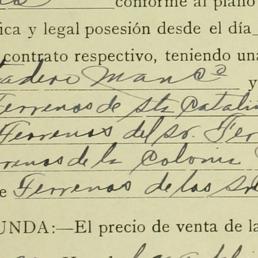 conforme al plano
ica y legal posesión desde el día
contrato respectivo, teniendo una
y
Terrenos de sta Catali
Terrenos del sr. Fer
rrenos de la Colonia
e Terrenos de los sr
UNDA:—El precio de venta de la